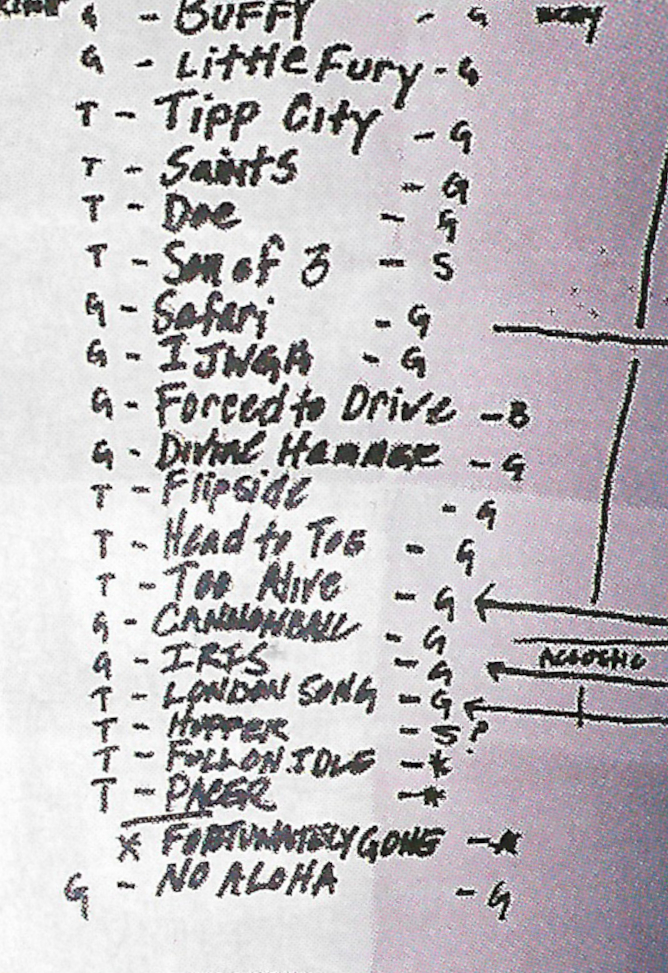 G - BUFFY - G
G - Little Fury - G
T - Tipp City - G
T - Saints - G
T - Doe - G
T - Son of 3 - S
G - Safari - G
G - IJWGA - G
G - Forced to Drive - B
G - Divine Hammer - G
T - Flipside - G
T - Head to Toe - G
T - Too Alive - G
G - CANNONBALL - G
G - IRIS - G
ACOUSTIC
T - LONDON SONG - G
T - HOFFER - S?
T - FULL ON IDLE - *
T - PACER - *
X FORTUNATELY GONE - *
G - NO ALOHA - G